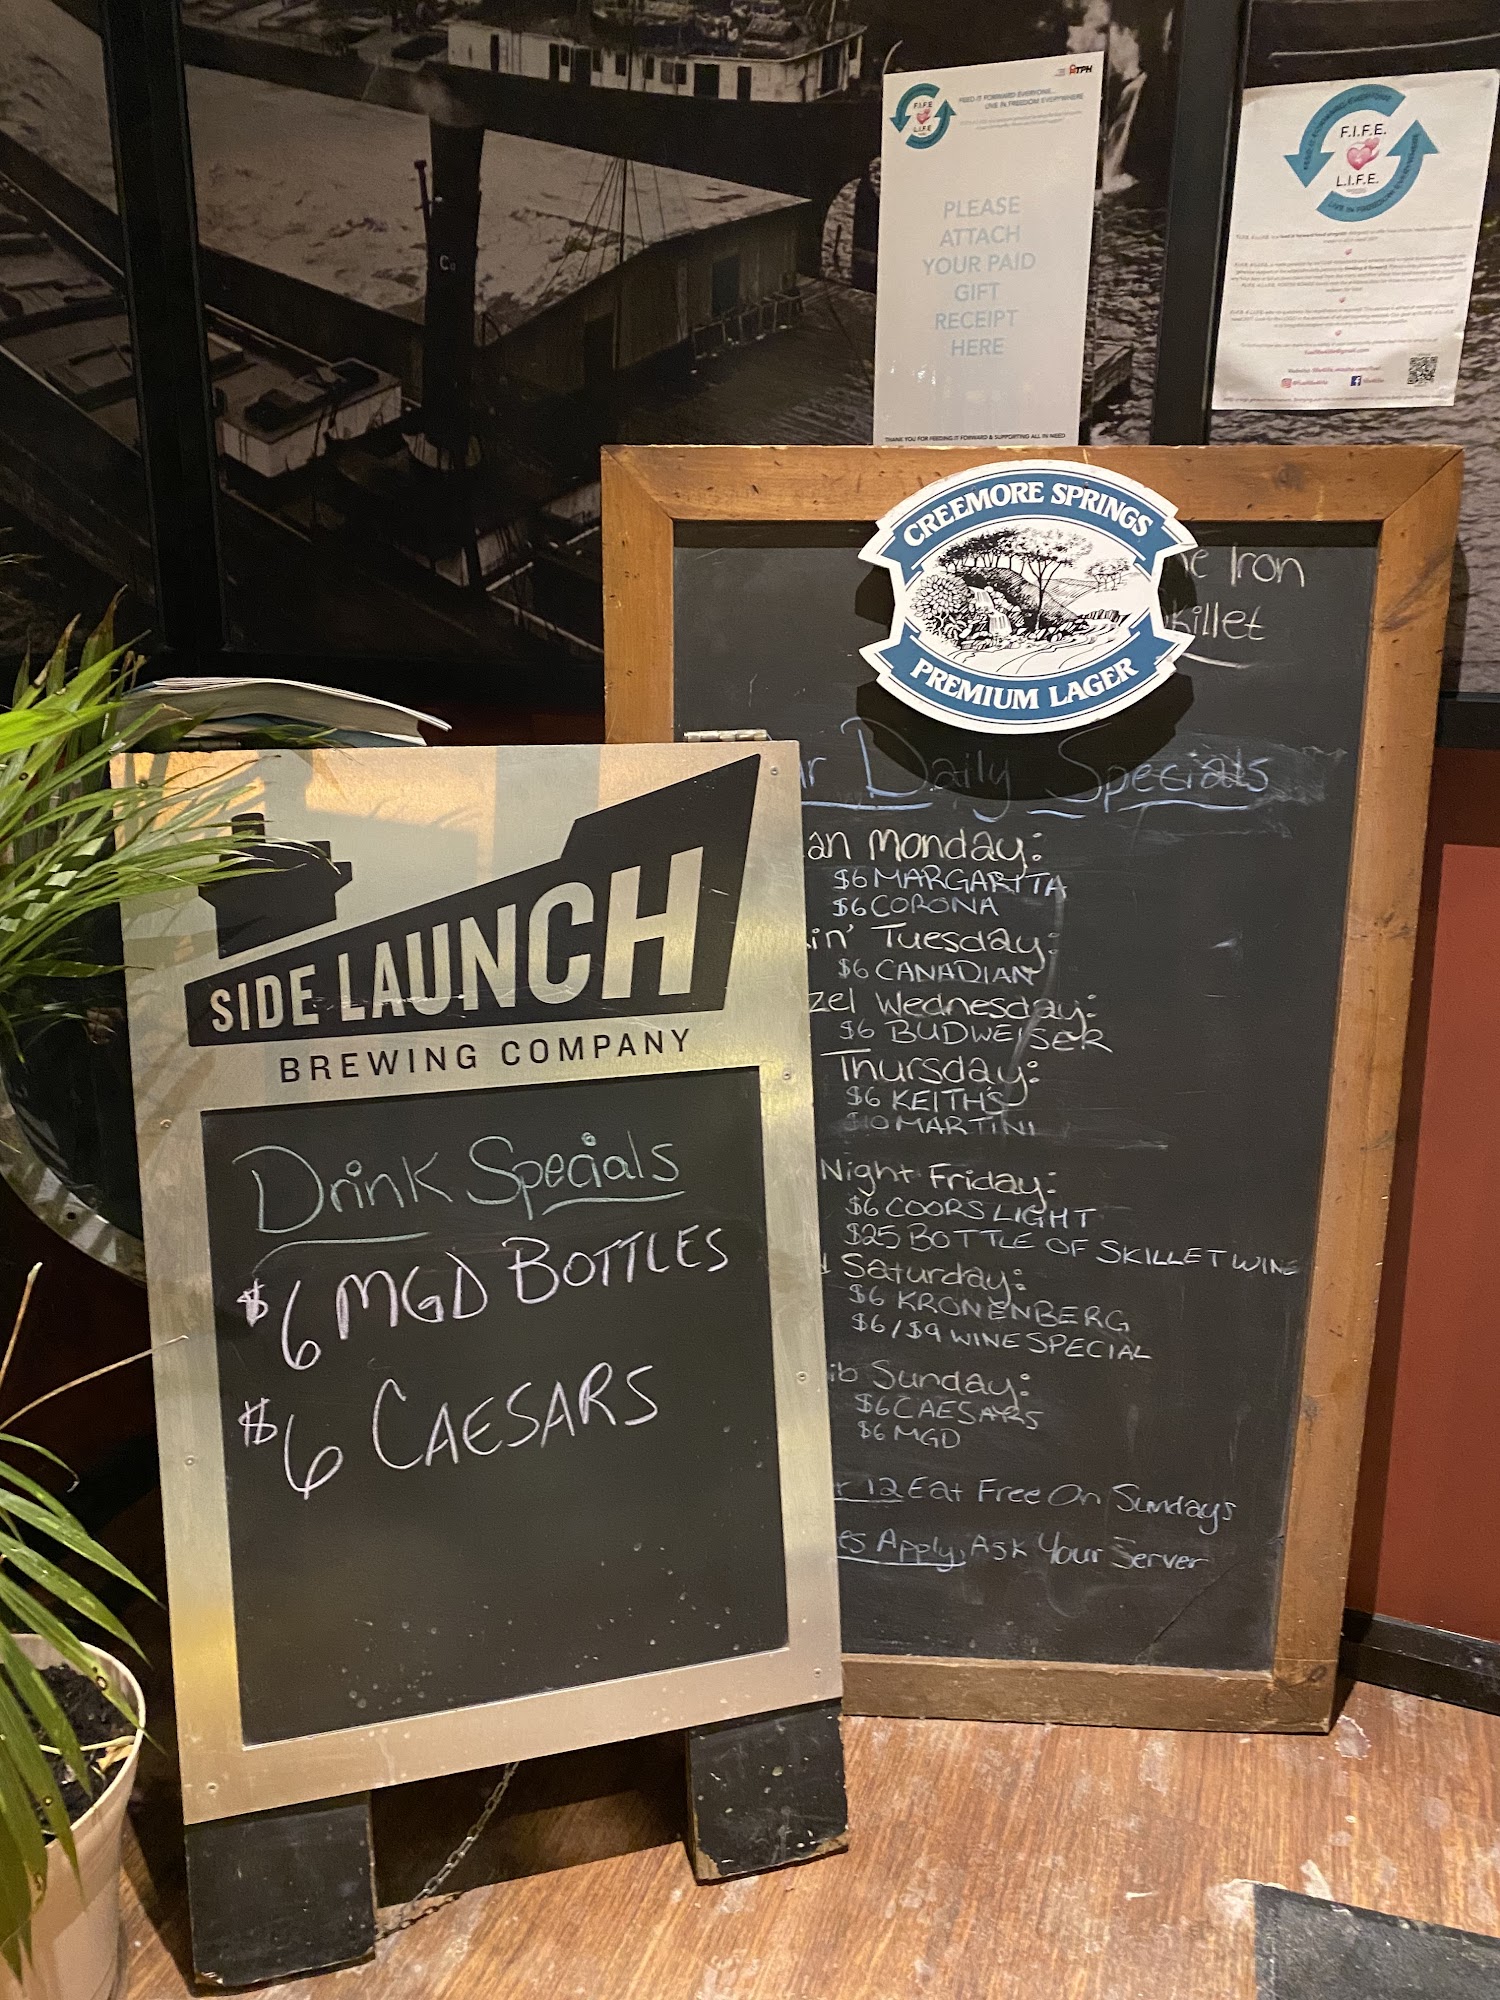 ATPH
FEED IT FORWARD EVERYONE...
LIVE IN FREEDOM EVERYWHERE
F.I.F.E.
L.I.F.E.
PLEASE
ATTACH
YOUR PAID
GIFT
RECEIPT
HERE
THANK YOU FOR FEEDING IT FORWARD & SUPPORTING ALL IN NEED
FEED IT FORWARD EVERYONE
F.I.F.E.
4
L.I.F.E.
LIVE IN FREEDOM EVERYWHERE
CREEMORE SPRINGS
PREMIUM LAGER
Iron
killet
Daily Specials
an Monday:
$6 MARGARITA
$6 CORONA
in' Tuesday:
$6 CANADIAN
zel Wednesday:
$6 BUDWEISER
Thursday:
$6 KEITH'S
$10 MARTINI
Night Friday:
$6 COORS LIGHT
$25 BOTTLE OF SKILLET WINE
Saturday:
$6 KRONENBERG
$6/$9 WINE SPECIAL
ib Sunday:
$6 CAESARS
$6 MGD
r 12 Eat Free On Sundays
es Apply, Ask Your Server
SIDE LAUNCH
BREWING COMPANY
Drink Specials
$6 MGD BOTTLES
$6 CAESARS